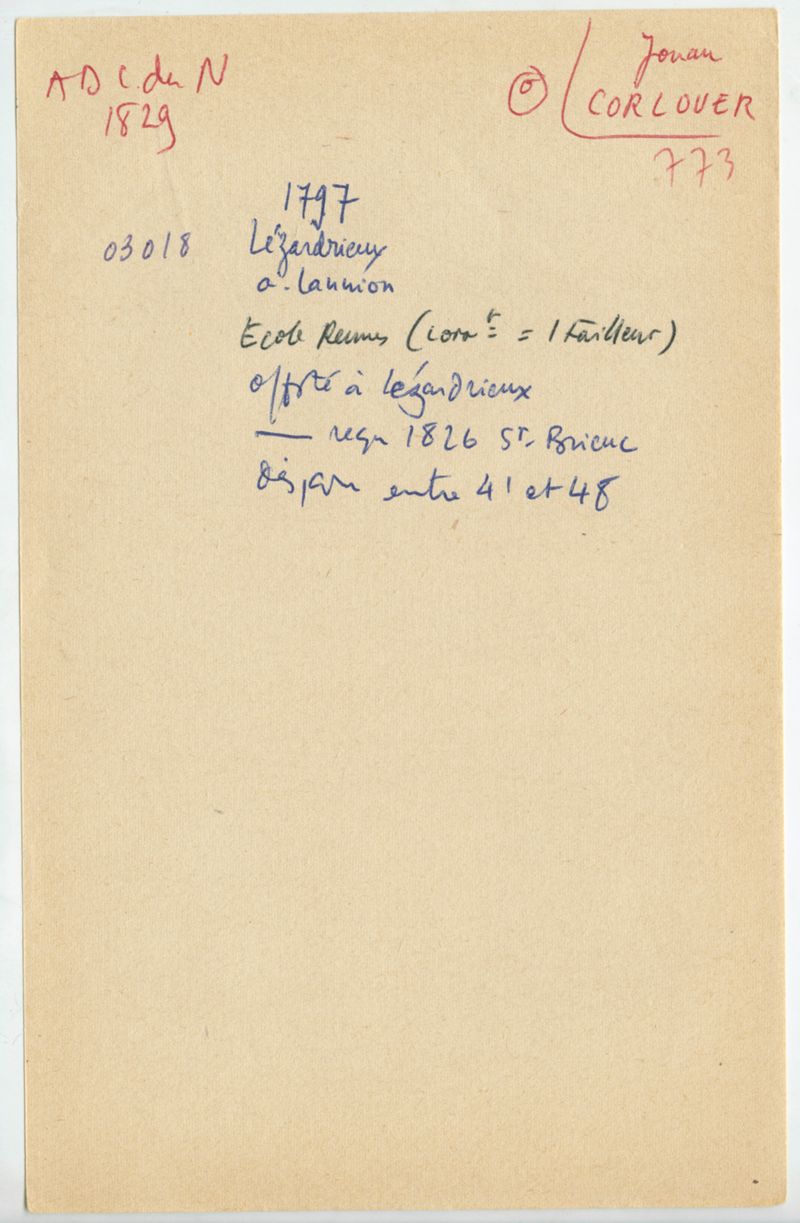 ADC. du N
1829
Jouan
CORLOUER
773
1797
03018
Lézardrieux
a. Lannion
Ecole Rennes (cora^t = 1 tailleur)
offté à Lézardrieux
— reçu 1826 St. Brieuc
Dispar entre 41 et 48